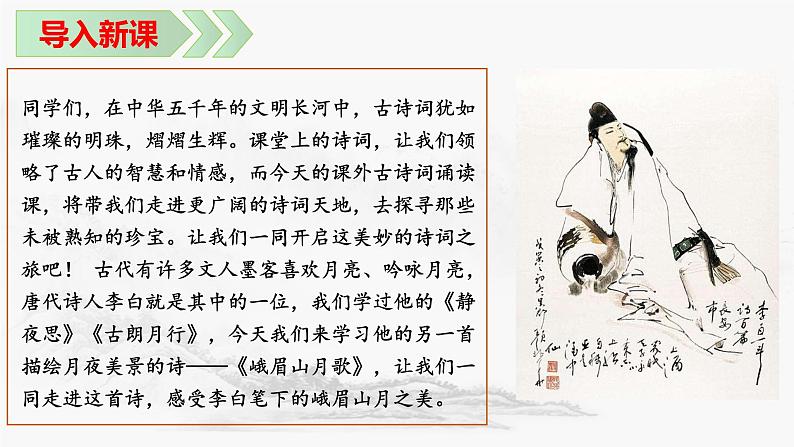 导入新课
同学们，在中华五千年的文明长河中，古诗词犹如
璀璨的明珠，熠熠生辉。课堂上的诗词，让我们领
略了古人的智慧和情感，而今天的课外古诗词诵读
课，将带我们走进更广阔的诗词天地，去探寻那些
未被熟知的珍宝。让我们一同开启这美妙的诗词之
旅吧！ 古代有许多文人墨客喜欢月亮、吟咏月亮，
唐代诗人李白就是其中的一位，我们学过他的《静
夜思》《古朗月行》，今天我们来学习他的另一首
描绘月夜美景的诗——《峨眉山月歌》，让我们一
同走进这首诗，感受李白笔下的峨眉山月之美。
李白一斗
诗百篇
长安
市
上酒
家眠
天子呼
来不上
船
自称
臣是
酒中
仙